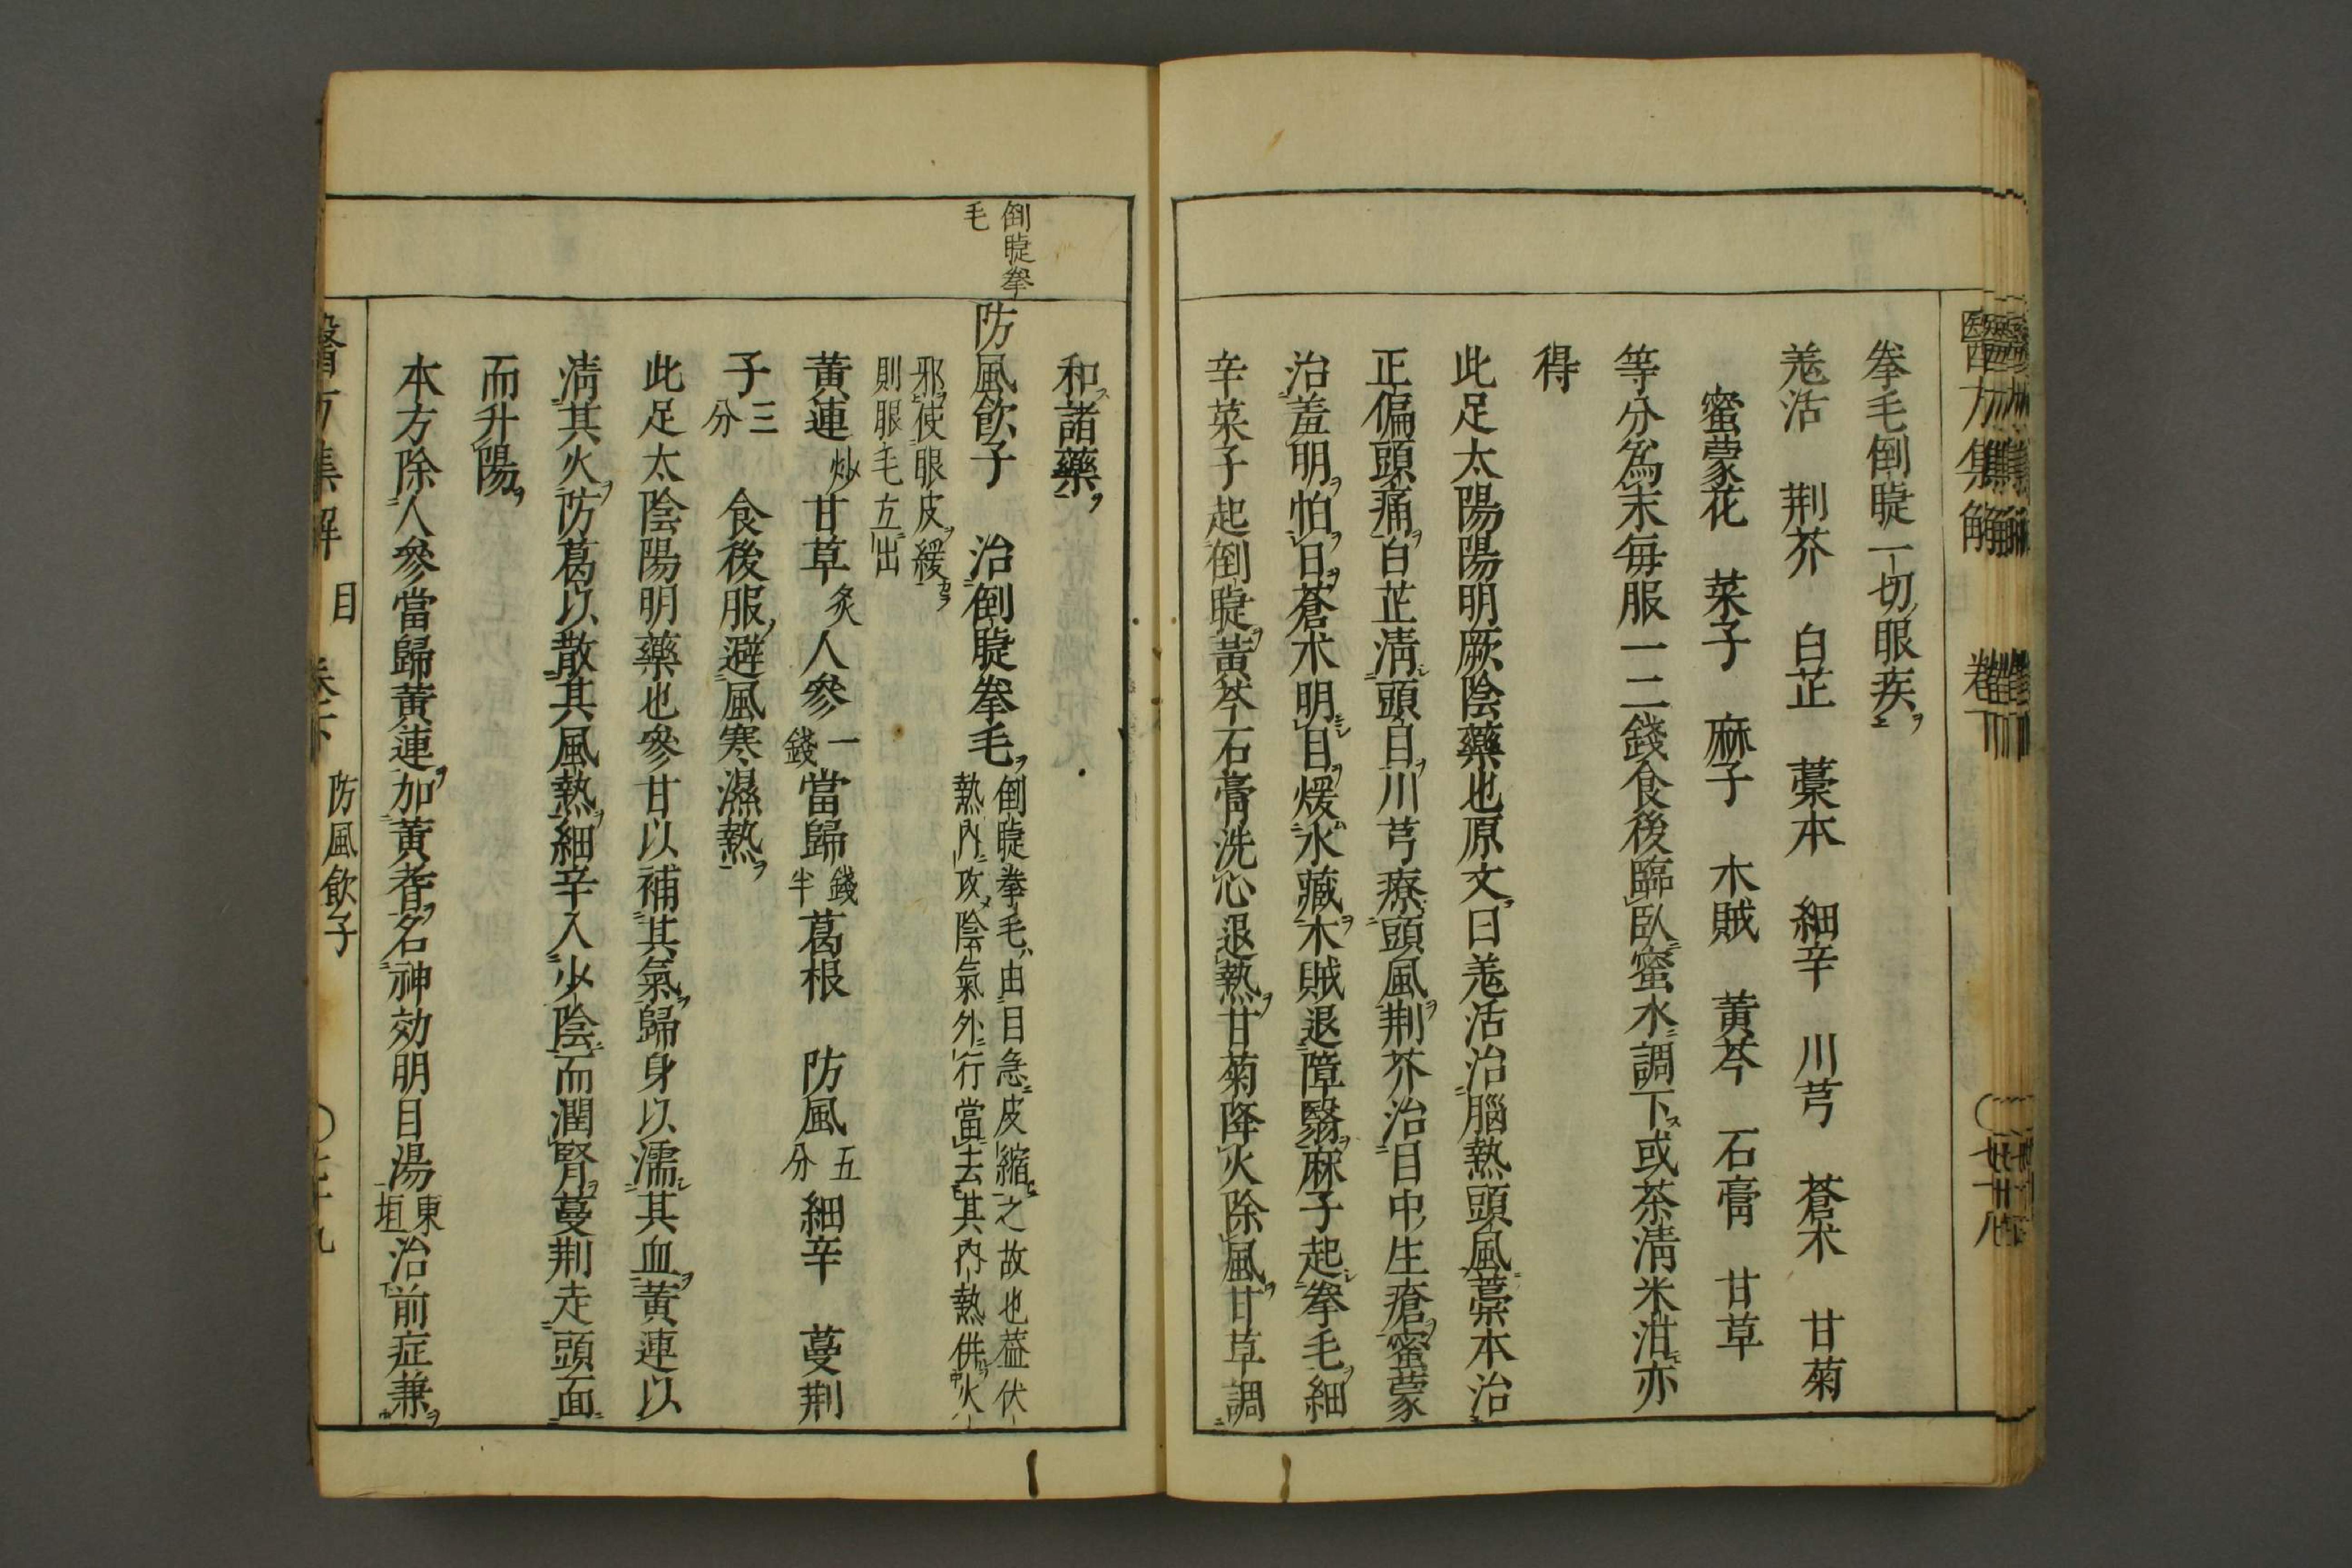 醫方集解 卷下
拳毛倒睫一切眼疾
羗活 荆芥 白芷 藁本 細辛 川芎 蒼术 甘菊
蜜蒙花 菜子 麻子 木賊 黄芩 石膏 甘草
等分爲末毎服一二錢食後臨臥蜜水調下或茶淸米泔亦
得
此足太陽陽明厥陰藥也原文曰羗活治腦熱頭風藁本治
正偏頭痛白芷淸頭目川芎療頭風荆芥治目中生瘡蜜蒙
治羞明怕日蒼术明目煖水藏木賊退障翳麻子起拳毛細
辛菜子起倒睫黄芩石膏洗心退熱甘菊降火除風甘草調
和諸藥
倒睫拳
毛
防風飮子 治倒睫拳毛
倒睫拳毛由目急皮縮之故也葢伏
熱內攻陰氣外行當去其內熱併火
邪使眼皮緩
則眼毛立出
黄連炒甘草炙人參一錢當歸錢半葛根 防風五分細辛 蔓荆
子三分 食後服避風寒濕熱
此足太陰陽明藥也參甘以補其氣歸身以濡其血黄連以
淸其火防葛以散其風熱細辛入少陰而潤腎蔓荆走頭面
而升陽
本方除人參當歸黄連加黄耆名神効明目湯東垣治前症兼
醫方集解 目 卷下 防風飮子